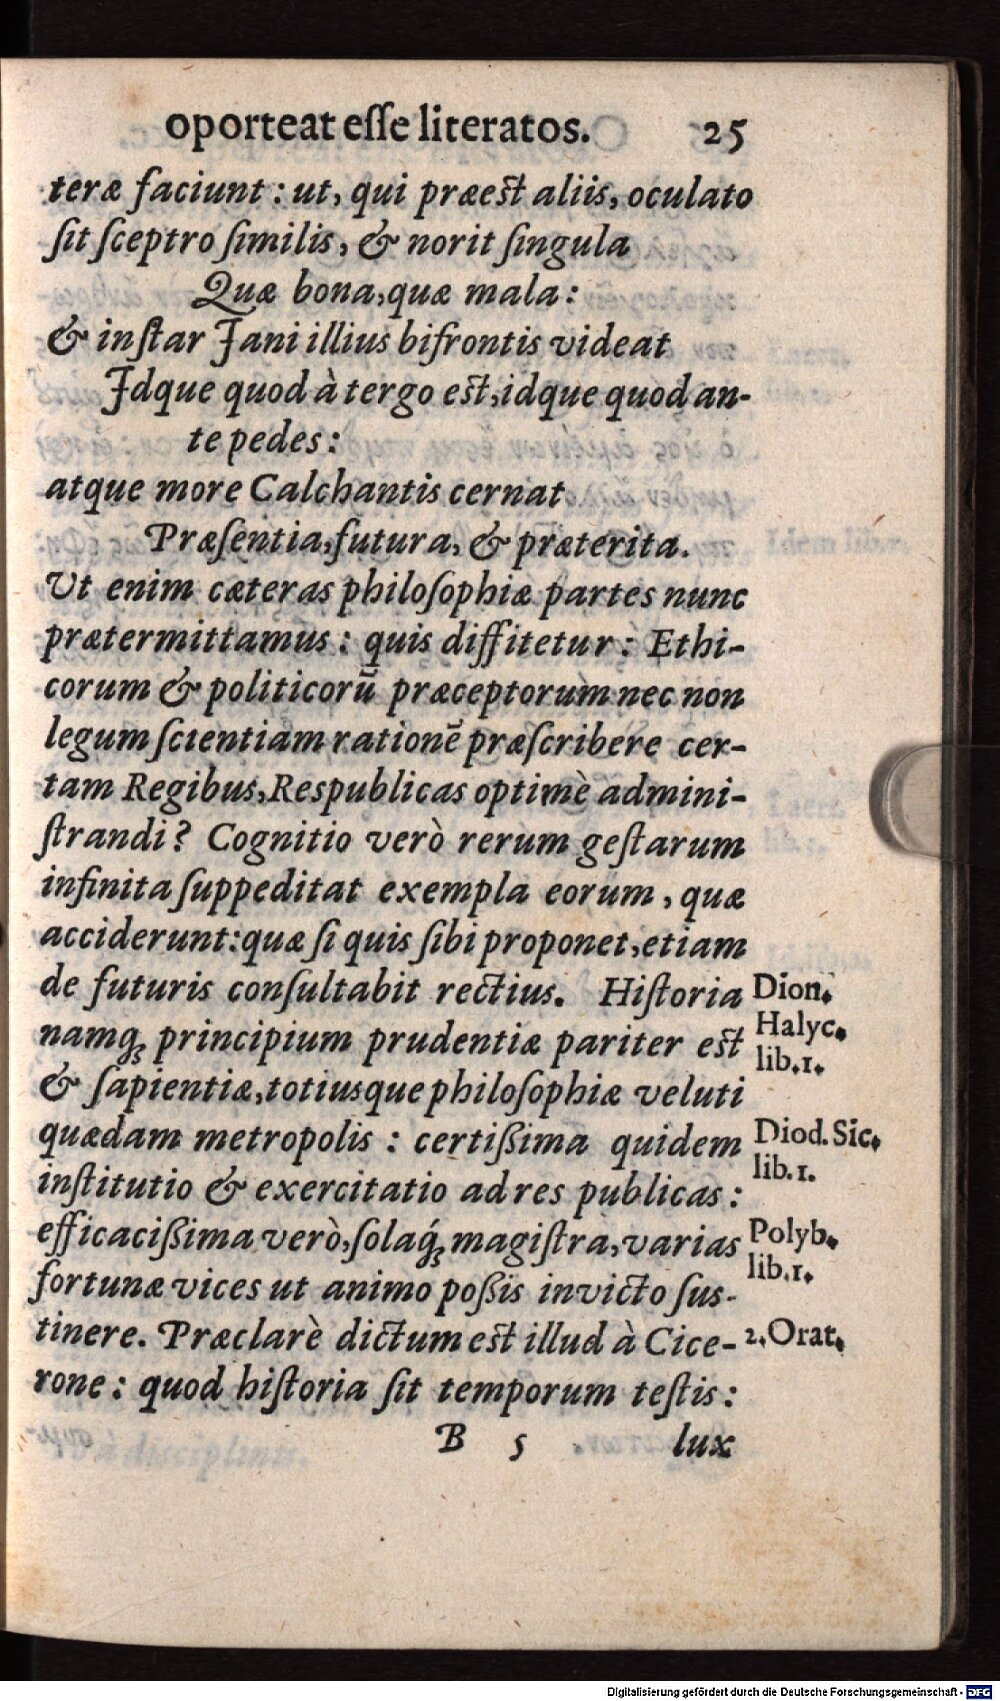 oporteat eſſe literatos. 25
teræ faciunt : ut, qui præest aliis, oculato
ſit ſceptro ſimilis, & norit ſingula
Quæ bona, quæ mala :
& inſtar Jani illius bifrontis videat
Jdque quod à tergo est, idque quod an-
te pedes :
atque more Calchantis cernat
Præſentia, futura, & præterita.
Ut enim cæteras philoſophiæ partes nunc
prætermittamus : quis diffitetur : Ethi-
corum & politicorū præceptorum nec non
legum ſcientiam rationē præſcribere cer-
tam Regibus, Respublicas optimè admini-
ſtrandi? Cognitio verò rerum geſtarum
infinita ſuppeditat exempla eorum, quæ
acciderunt: quæ ſi quis ſibi proponet, etiam
de futuris conſultabit rectius. Hiſtoria
Dion.
Halyc.
lib.1.
namq; principium prudentiæ pariter est
& ſapientiæ, totiusque philoſophiæ veluti
quædam metropolis : certißima quidem
Diod. Sic.
lib.1.
inſtitutio & exercitatio ad res publicas :
efficacißima verò, ſolaq́; magiſtra, varias
Polyb.
lib.1.
fortunæ vices ut animo poßis invicto ſus-
tinere. Præclarè dictum est illud à Cice-
2. Orat.
rone : quod hiſtoria ſit temporum teſtis :
B 5 lux
Digitalisierung gefördert durch die Deutsche Forschungsgemeinschaft - DFG